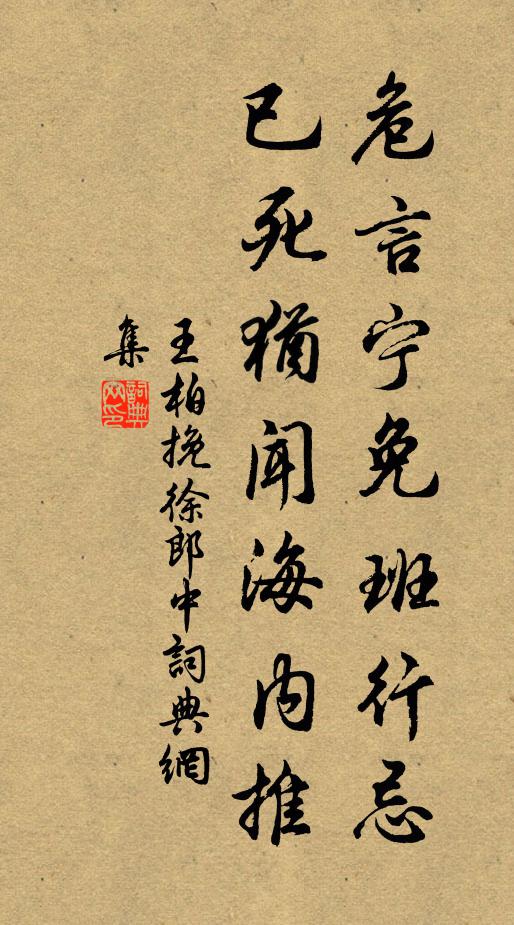 危言宁免班行忌
已死犹闻海内推
王柏挽徐郎中詞典網
集
詞典網印